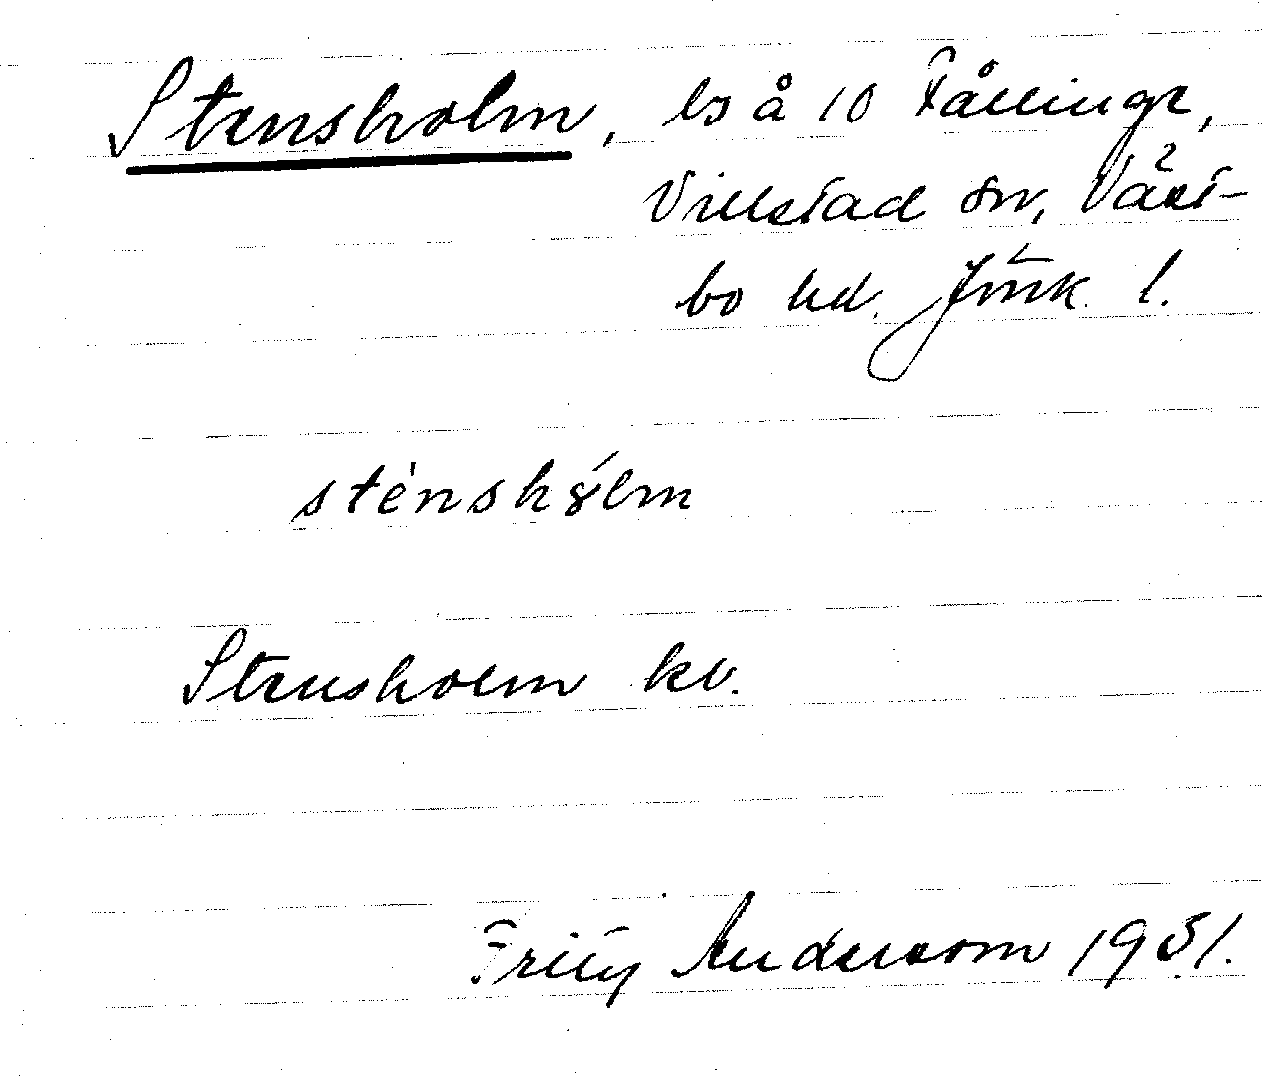 Stensholm, ls å 10 Fållinge,
Villstad sn, Väst-
bo hd. Jönk. l.
stènshólm
Stensholm kv.
Frity Andersson 1931.